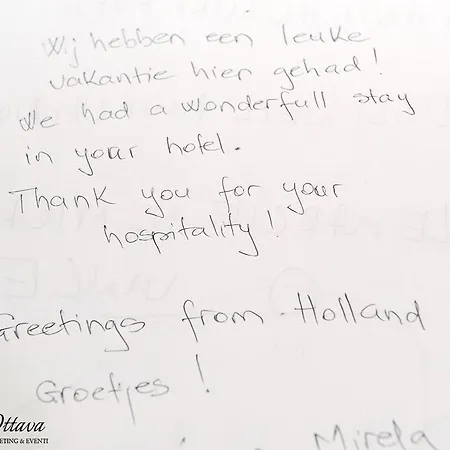 Wij hebben een leuke
vakantie hier gehad!
We had a wonderfull stay
in your hotel.
Thank you for your
hospitality!
Greetings from Holland
Groetjes!
Mirela
Ottava
ETING & EVENTI